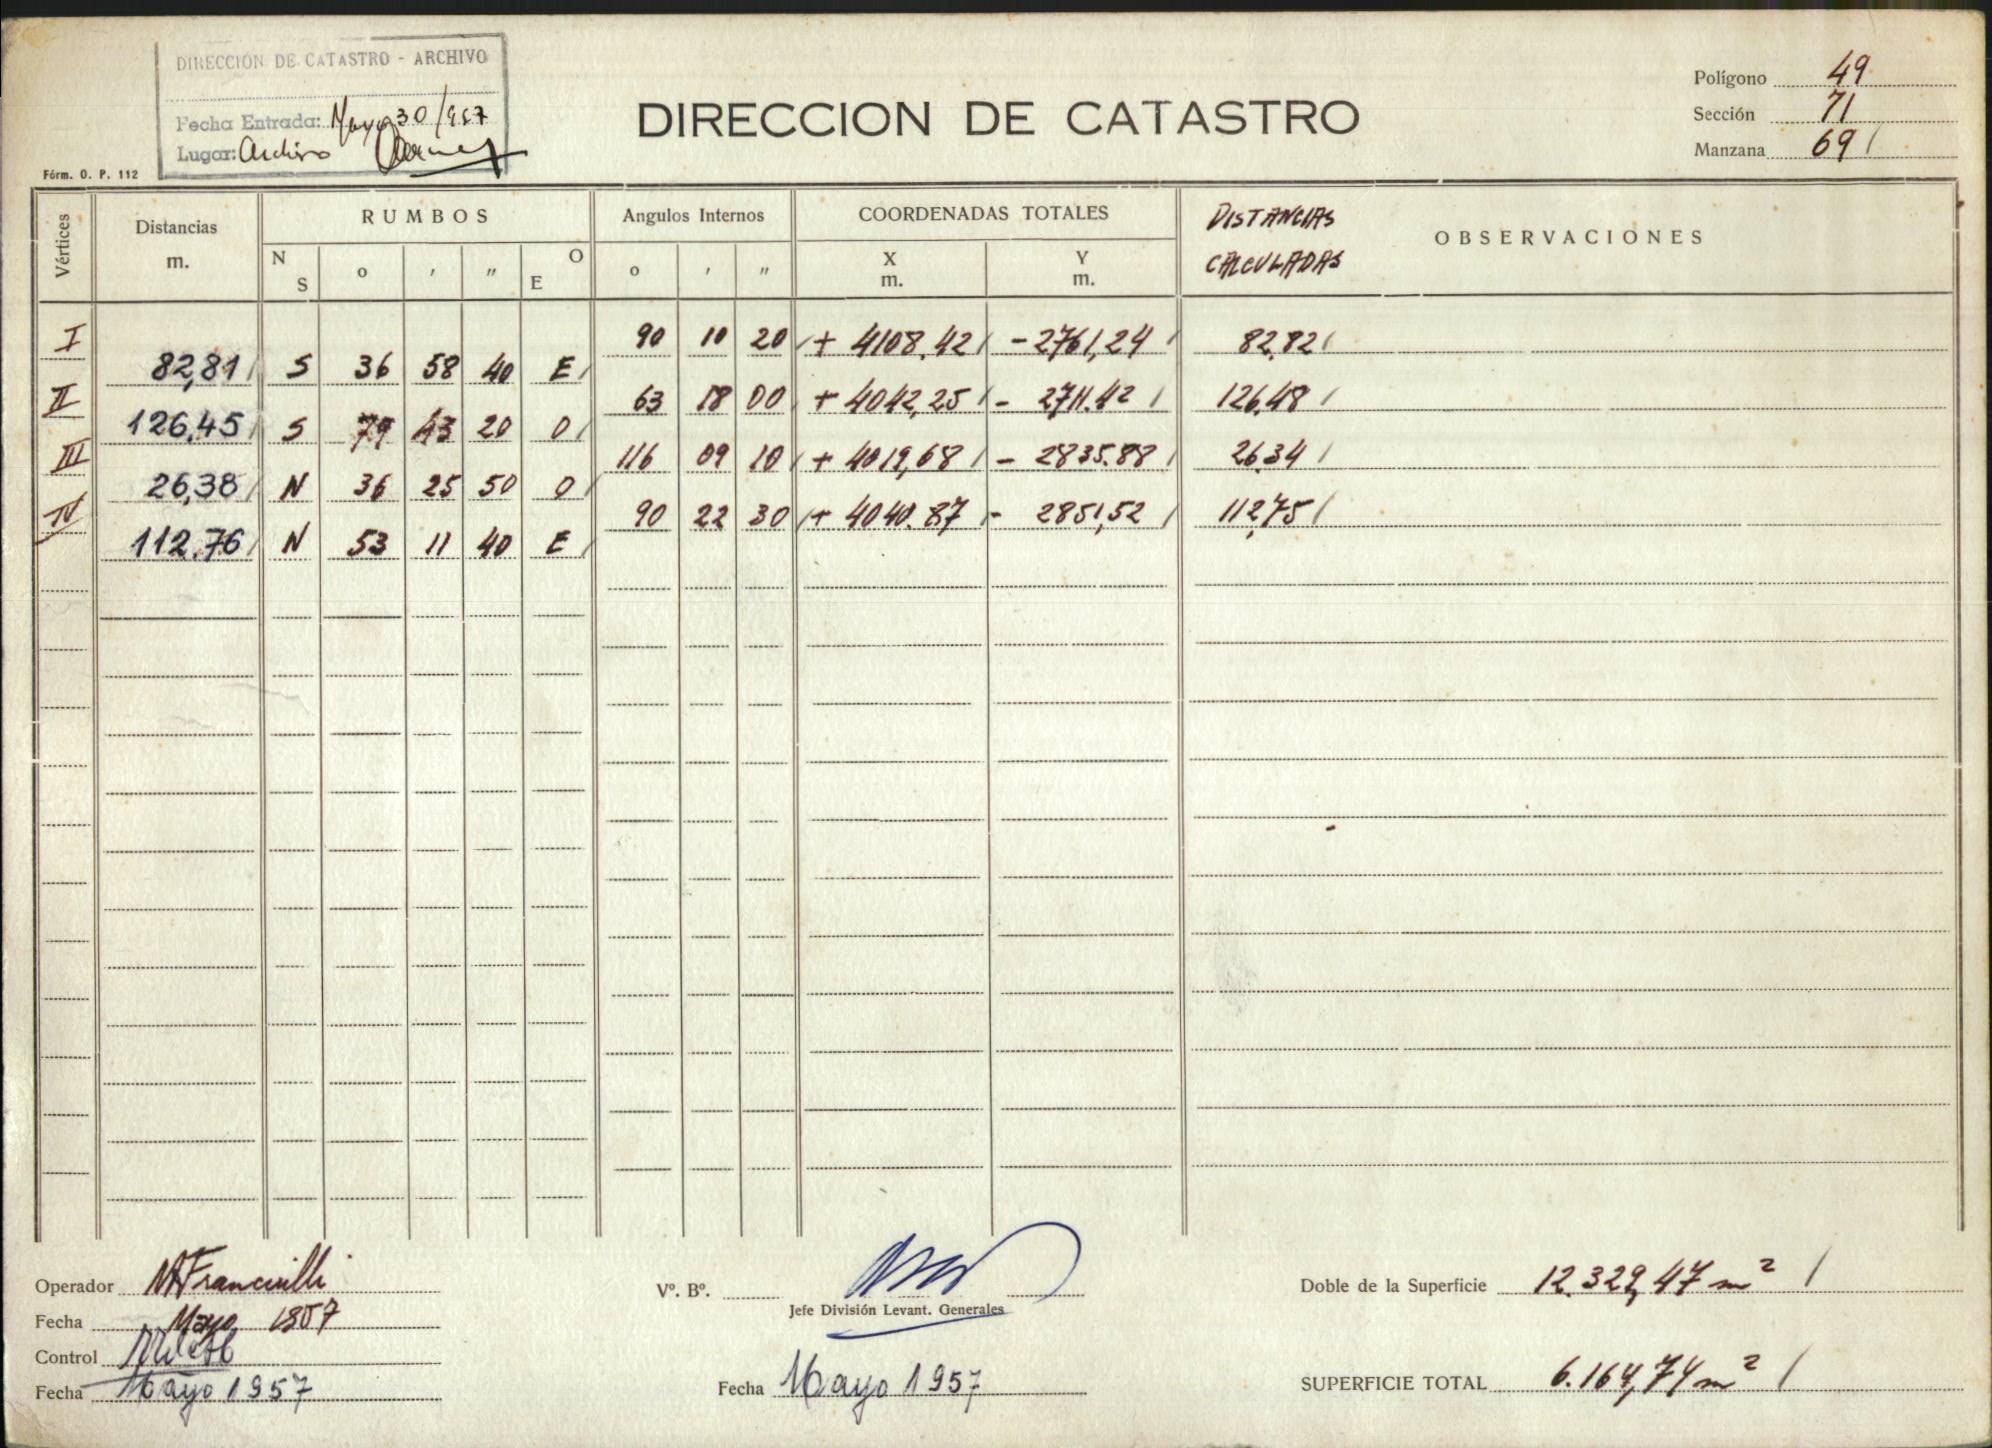 DIRECCIÓN DE CATASTRO - ARCHIVO
Fecha Entrada: Mayo 30/957
Lugar: Archivo
Fórm. O. P. 112
DIRECCION DE CATASTRO
Polígono 49
Sección 71
Manzana 69
Vértices Distancias m. RUMBOS Angulos Internos COORDENADAS TOTALES DISTANCIAS CALCULADAS OBSERVACIONES
N S o ' " O E o ' " X m. Y m.
I 90 10 20 + 4108.42 - 2761,24 82.82
82,81 S 36 58 40 E
II 63 18 00 + 4042,25 - 2711.42 126,48
126,45 S 79 43 20 O
III 116 09 10 + 4019,68 - 2835.88 26.34
26,38 N 36 25 50 O
IV 90 22 30 + 4040.87 - 2851,52 112,75
112,76 N 53 11 40 E
Operador
Fecha Mayo 1957
Control
Fecha Mayo 1957
Vº. Bº.
Jefe División Levant. Generales
Fecha Mayo 1957
Doble de la Superficie 12.329,47 m²
SUPERFICIE TOTAL 6.164,74 m²